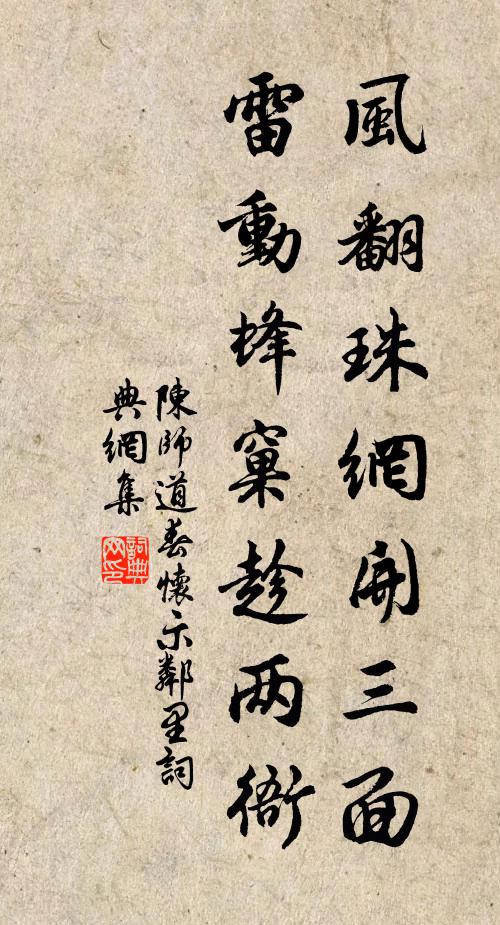 風翻珠網開三面
雷動蜂窠趁两衙
陳師道春懷示鄰里詞
典網集
詞典
网印